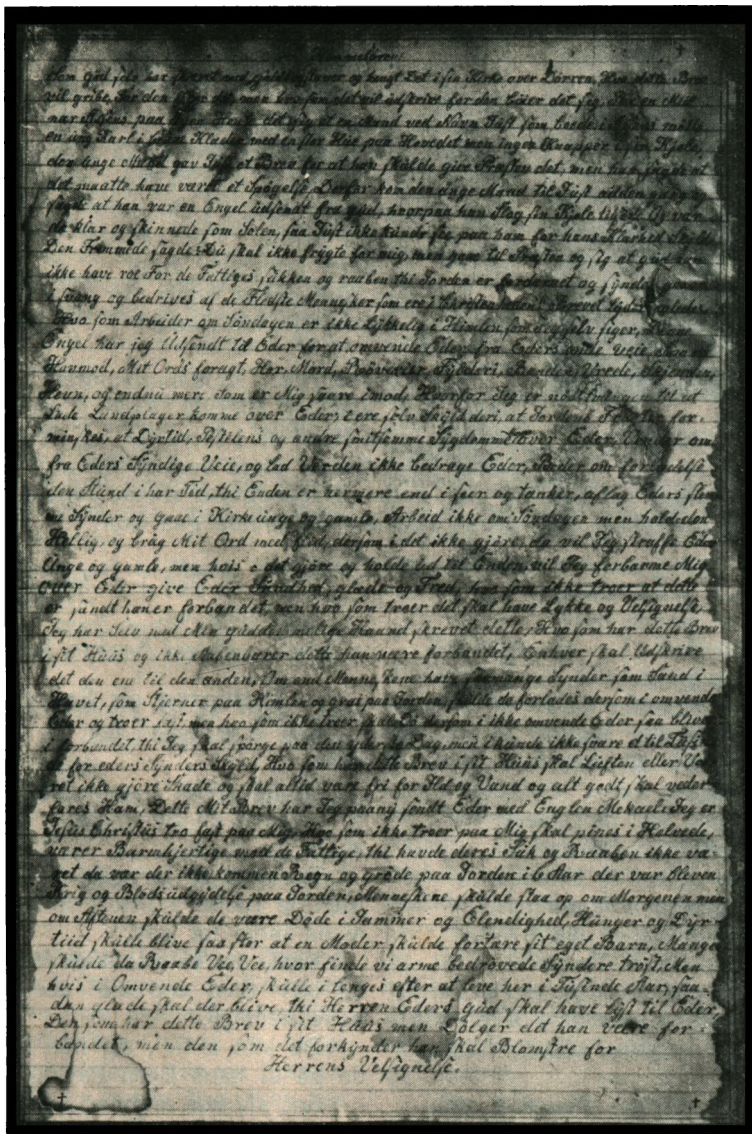 Himmelbrev
Som Gud selv har skrevit med Guldbogstaver og hengt Det i sin Kirke over Dörren, Hvo dette Brev
vil gribe, For den men hvo som det vil udskrive for den böier det sig, en Mid
nat paa det sig at en Mand ved Navn Just som boede i Aghüs mötte
en ung Karl i Klæder med en stor Hüe paa Hovedet men ingen Knapper i sin Kjole,
den unge Mand gav Just et Brev for at han skülde give Præsten det, men han sagde at
det maatte have været et Spögelse, Derfor kom den unge Mand til Just anden gang og
sagde at han var en Engel üdsendt fra Gud, hvorpaa han slog sin Kjole til side Og var
da klar og skinnede som Solen, saa Just ikke künde see paa ham for hans Klarhed skyld
Den Fremmede sagde: Dü skal ikke frygte for mig, men gaae til Præsten og sig at Gud kan
ikke have roe For de Fattiges sükken og raaben thi Jorden er fordærvet og Synden gaaer
i svang og bedrives af de Fleeste Mennesker som ere i Christendomen. Brevet lyd saaledes.
Hvo som Arbeider om Söndagen er ikke Lykkelig i Himlen som Jeg selv siger, Denne
Engel har jeg Udsendt til Eder for at omvende Eder fra Eders onde Veie, som er
Hovmod, Mit Ords foragt, Hor, Mord, Röverier, Tyverier, Banden, Vrede, Avind,
Hevn, og endnü mere som er Mig saare imod, Hvorfor Jeg er nödttvüngen til at
lade Landplager komme over Eder, i ere selv Skyld deri, at Jordens Frügter for-
minskes, at Dyrtid, Pestilens og andre smitsomme Sygdomme over Eder, Vender om
fra Eders Syndige Veie, og lad Verden ikke bedrage Eder, Beder om forladelse
i den Stünd i har Tid, thi Enden er nærmere end i seer og tænker, aflag Eders slem
me Synder og gaae i Kirke ünge og gamle, Arbeid ikke om Söndagen men hold den
Hellig, og brüg Mit Ord med Flid, dersom i det ikke gjöre, da vil Jeg straffe Eder
Unge og gamle, men hvis i det gjöre og holde üd til Enden, vil Jeg forbarme Mig
over Eder give Eder Sündhed, glæde og Fred, hvo som ikke troer at dette
er sandt han er forbandet, men hvo som troer det skal have Lykke og Velsignelse,
Jeg har Selv med Min Güddommelige Haand skrevet dette, Hvo som har dette Brev
i sit Hüüs og ikke Aabenbarer dette han være forbandet, Enhver skal Udskrive
det den ene til den anden, Om end Mennesken havde saamange Synder som Sand i
Havet, som Stjerner paa Himlen og græs paa Jorden, skülde da forlades dersom i omvende
Eder og troer fast men hvo som ikke troer skal Dö dersom i ikke omvende Eder saa bliver
i forbandet, thi Jeg skal spörge paa den yderste Dag, men i künde ikke svare et til Tüsin
de for eders Synders Skyld, Hvo som har dette Brev i sit Hüüs skal Lüften eller Ve-
ret ikke gjöre Skade og skal altid være fri for Ild og Vand og alt godt skal veder
fares Ham, Dette Mit Brev har Jeg paany sendt Eder med Englen Mekael: Jeg er
Jesüs Christüs tro fast paa Mig, Hvo som ikke troer paa Mig skal pines i Helvede,
værer Barmhjertige mod de Fattige, thi havde deres Sük og Raaben ikke væ-
ret da var der ikke kommen Regn og gröde paa Jorden i 6 Aar der var bleven
Krig og Blodsüdgydelse paa Jorden, Menneskene skülde staa op om Morgenen men
om Aftenen skülde de være Döde i Jammer og Elendighed, Hünger og Dyr-
tiid skülle blive saa stor at en Moder skülde fortære sit eget Barn, Mange
skülde da Raabe Vee, Vee, hvor finde vi arme bedrövede Syndere tröst, Men
hvis i Omvende Eder, skülle i lenges efter at leve her i Tüsinde Aar, saa-
dan glæde skal der blive, thi Herren Eders Gud skal have Lyst til Eder,
Den som har dette Brev i sit Hüüs men Dölger det han være for-
bandet, men den som det forkynder han skal Blomstre for
Herrens Velsignelse.